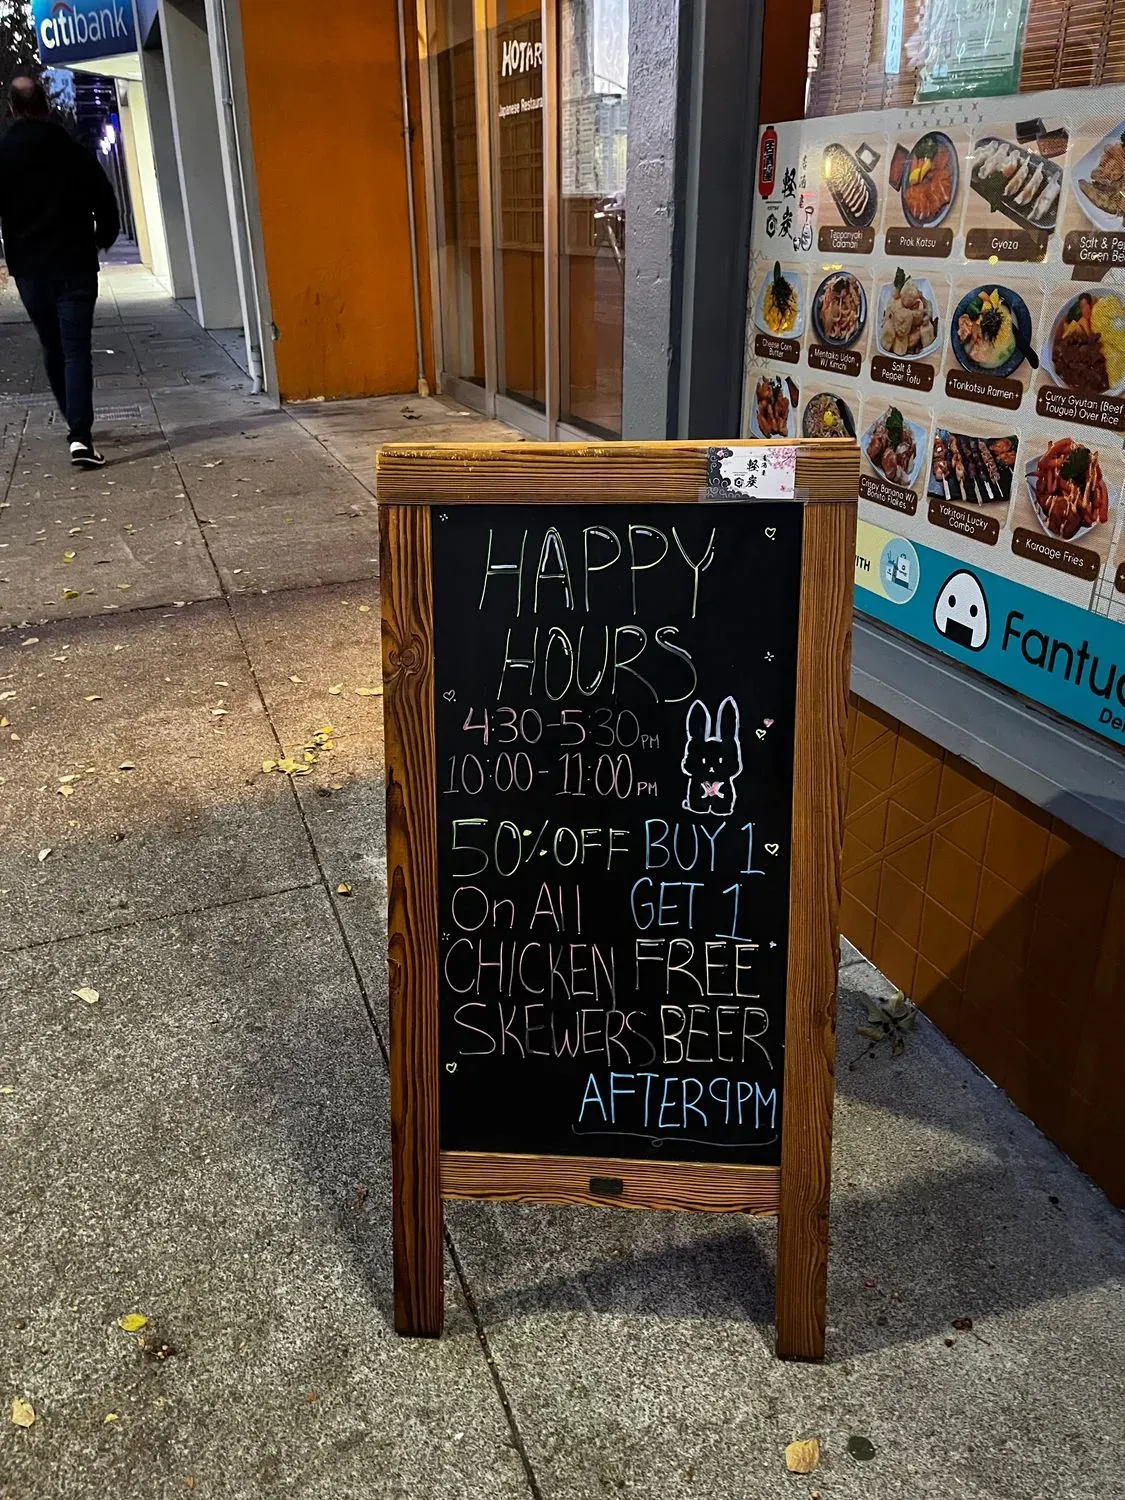 citibank
HOTAR
Japanese Restaura
居酒屋
軽炭
Teppanyaki Calamari
Prok Katsu
Gyoza
Salt & Pe
Green Be
Cheese Corn Butter
Mentaiko Udon W/ Kimchi
Salt & Pepper Tofu
Tonkotsu Ramen
Curry Gyutan (Beef Tougue) Over Rice
Crispy Banana W/ Bonito Flakes
Yakitori Lucky Combo
Karaage Fries
WITH
Fantu
De
軽炭
HAPPY
HOURS
4:30-5:30PM
10:00-11:00PM
50% OFF
On All
CHICKEN
SKEWERS
BUY 1
GET 1
FREE
BEER
AFTER 9PM